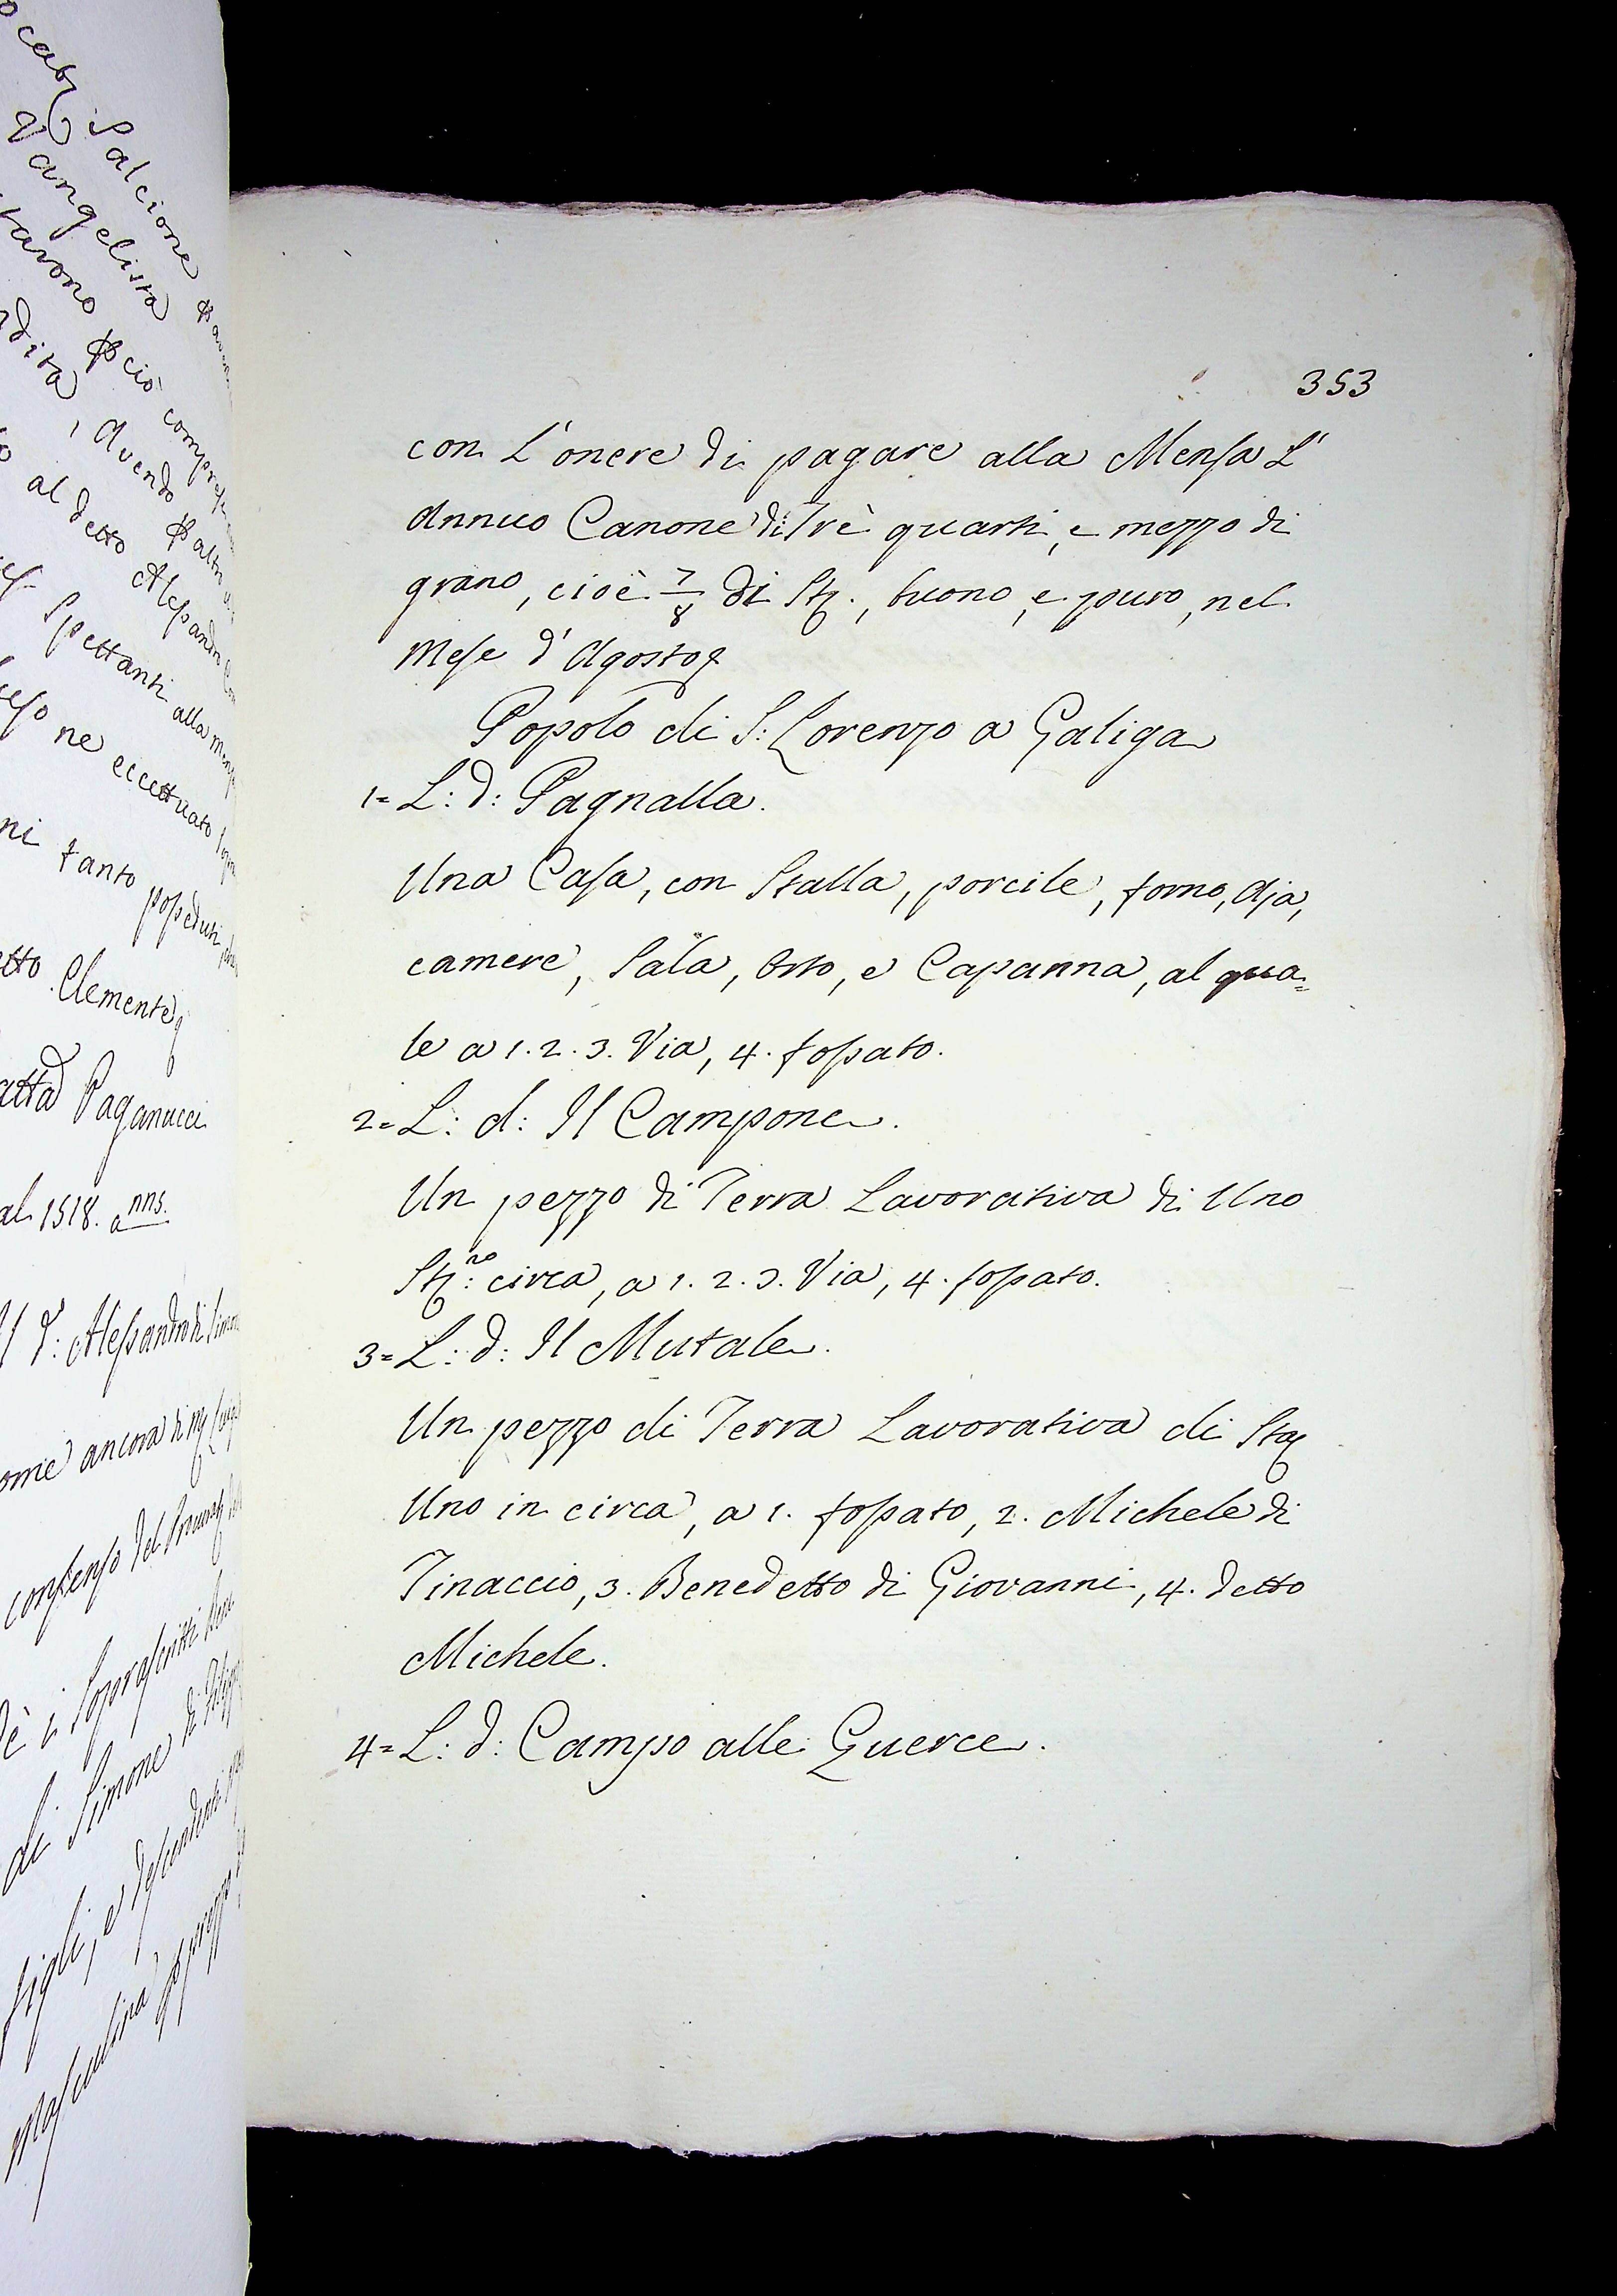 353
con L'onere di pagare alla Mensa L'
Annuo Canone di Trè quarti, e mezzo di
grano, cioè 7/8 di Sta., buono, e puro, nel
Mese d'Agosto
Popolo di S: Lorenzo a Galiga
1= L: d: Pagnalla.
Una Casa, con Stalla, porcile, forno, Aja,
camere, Sala, Orto, e Capanna, al qua=
le a 1. 2. 3. Via, 4. fossato.
2= L: d: Il Campone.
Un pezzo di Terra Lavorativa di Uno
circa, a 1. 2. 3. Via, 4. fossato.
3= L: d: Il Mutale.
Un pezzo di Terra Lavorativa di Sta
Uno in circa, a 1. fossato, 2. Michele di
Tinaccio, 3. Benedetto di Giovanni, 4. detto
Michele.
4= L: d: Campo alle Querce.
Salcione
Vangelista
ciò
Avendo
al detto Alessandro
Spettanti alla
ne eccettuato
tanto
Clemente
Paganucci
al 1518.
d: Alessandro di
ancora di
consenso del
è i Soprascritti
di Simone di
figli, e descendenti